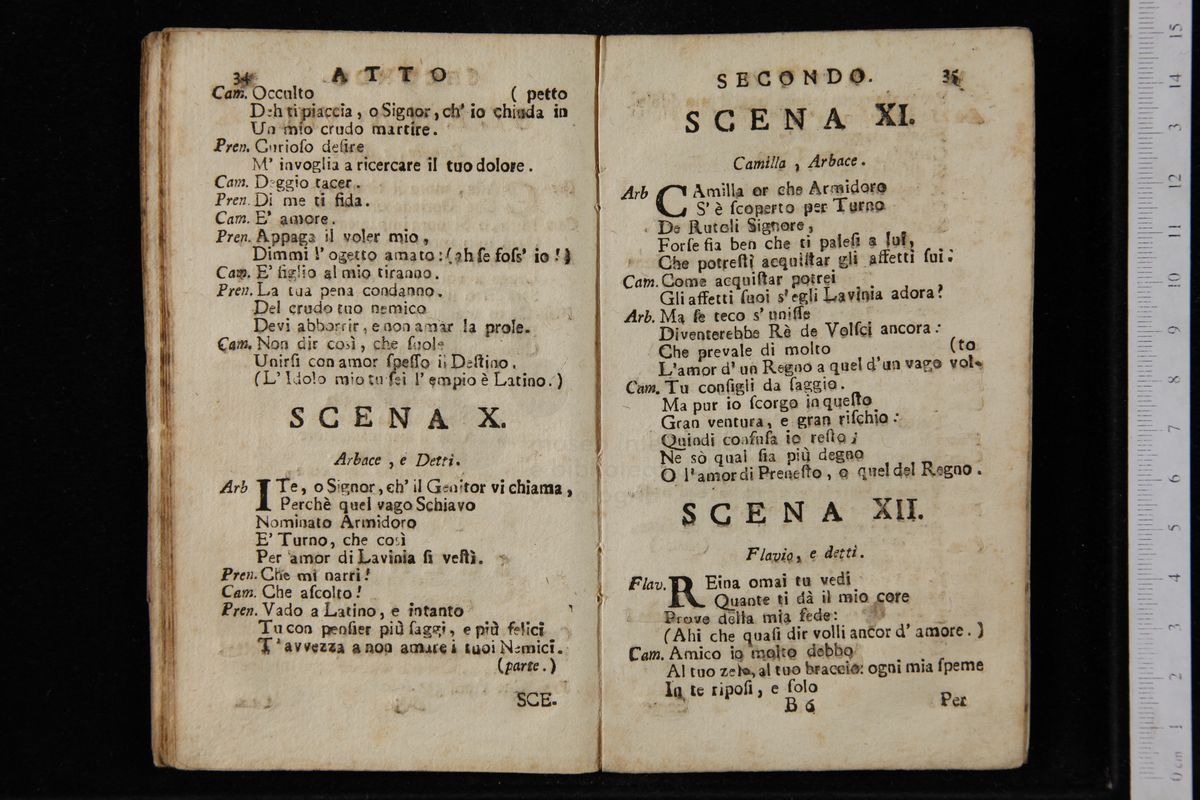 34 ATTO
Cam. Occulto ( petto
Deh ti piaccia, o Signor, ch' io chiuda in
Un mio crudo martire.
Pren. Curioſo deſire
M' invoglia a ricercare il tuo dolore.
Cam. Deggio tacer.
Pren. Di me ti fida.
Cam. E' amore.
Pren. Appaga il voler mio,
Dimmi l' ogetto amato: (ah ſe foſs' io!)
Cam. E' figlio al mio tiranno.
Pren. La tua pena condanno.
Del crudo tuo nemico
Devi abborrir, e non amar la prole.
Cam. Non dir così, che ſuole
Unirſi con amor ſpeſſo il Deſtino.
(L' Idolo mio tu ſei l' empio è Latino.)
SCENA X.
Arbace, e Detti.
Arb ITe, o Signor, ch' il Genitor vi chiama,
Perchè quel vago Schiavo
Nominato Armidoro
E' Turno, che così
Per amor di Lavinia ſi veſtì.
Pren. Che mi narri!
Cam. Che aſcolto!
Pren. Vado a Latino, e intanto
Tu con penſier più ſaggi, e più felici
T' avvezza a non amare i tuoi Nemici.
(parte.)
SCE.
SECONDO. 35
SCENA XI.
Camilla, Arbace.
Arb CAmilla or che Armidoro
S' è ſcoperto per Turno
De Rutoli Signore,
Forſe fia ben che ti paleſi a lui,
Che potreſti acquiſtar gli affetti ſui.
Cam. Come acquiſtar potrei
Gli affetti ſuoi s' egli Lavinia adora?
Arb. Ma ſe teco s' uniſſe
Diventerebbe Rè de Volſci ancora:
Che prevale di molto (to
L'amor d' un Regno a quel d'un vago vol-
Cam. Tu conſigli da ſaggio.
Ma pur io ſcorgo in queſto
Gran ventura, e gran riſchio:
Quindi confuſa io reſto;
Ne sò qual ſia più degno
O l'amor di Preneſto, o quel del Regno.
SCENA XII.
Flavio, e detti.
Flav. REina omai tu vedi
Quante ti dà il mio core
Prove della mia fede:
(Ahi che quaſi dir volli ancor d' amore.)
Cam. Amico io molto debbo
Al tuo zelo, al tuo braccio: ogni mia ſpeme
In te ripoſi, e ſolo
B 6 Per
0 cm 1 2 3 4 5 6 7 8 9 10 11 12 13 14 15